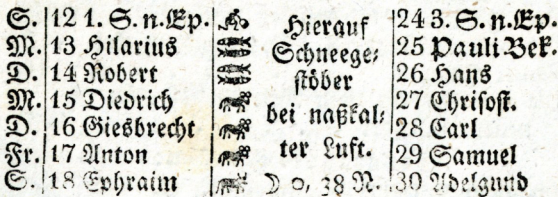 S. 12 1. S. n. Ep. Hierauf 24 3. S. n. Ep.
M. 13 Hilarius Schneege⸗ 25 Pauli Bek.
D. 14 Robert stöber 26 Hans
M. 15 Diedrich bei naßkal⸗ 27 Chrisost.
D. 16 Giesbrecht ter Luft. 28 Carl
Fr. 17 Anton 29 Samuel
S. 18 Ephraim ☽ 0, 38 N. 30 Adelgund